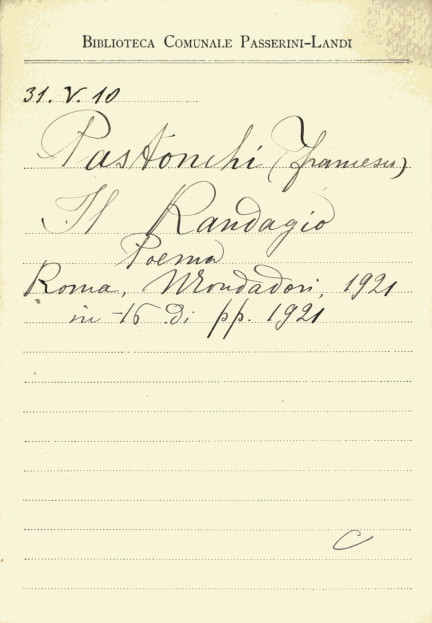 BIBLIOTECA COMUNALE PASSERINI-LANDI
31. V. 10
Pastonchi (Francesco)
Il Randagio
Poema
Roma, Mondadori, 1921
in-16 di pp. 1921
C